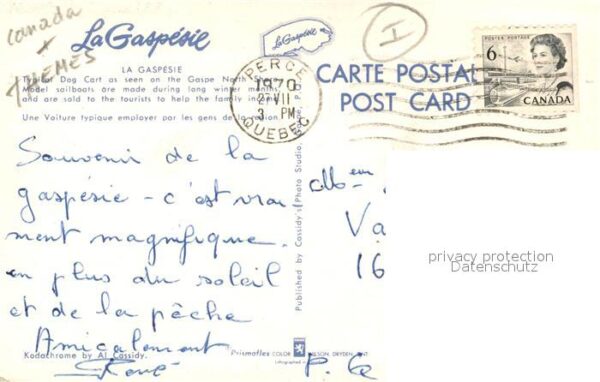 Canada
+
THÈMES
La Gaspésie
La Gaspésie
I
LA GASPÉSIE
Typical Dog Cart as seen on the Gaspe North Shore.
Model sailboats are made during long winter months
and are sold to the tourists to help the family income.
Une Voiture typique employer par les gens de la région.
PERCE
1970
27 VII
3 PM
QUEBEC
CARTE POSTAL
POST CARD
6
POSTES POSTAGE
CANADA
Souvenir de la
gaspésie - c'est vrai
ment magnifique.
en plus du soleil
et de la pêche
Amicalement
René
Va
16
P. Q
privacy protection
Datenschutz
Published by Cassidy's Photo Studio,
Kodachrome by Al Cassidy.
Prismaflex COLOR
WILSON, DRYDEN, ONT
Lithographed in